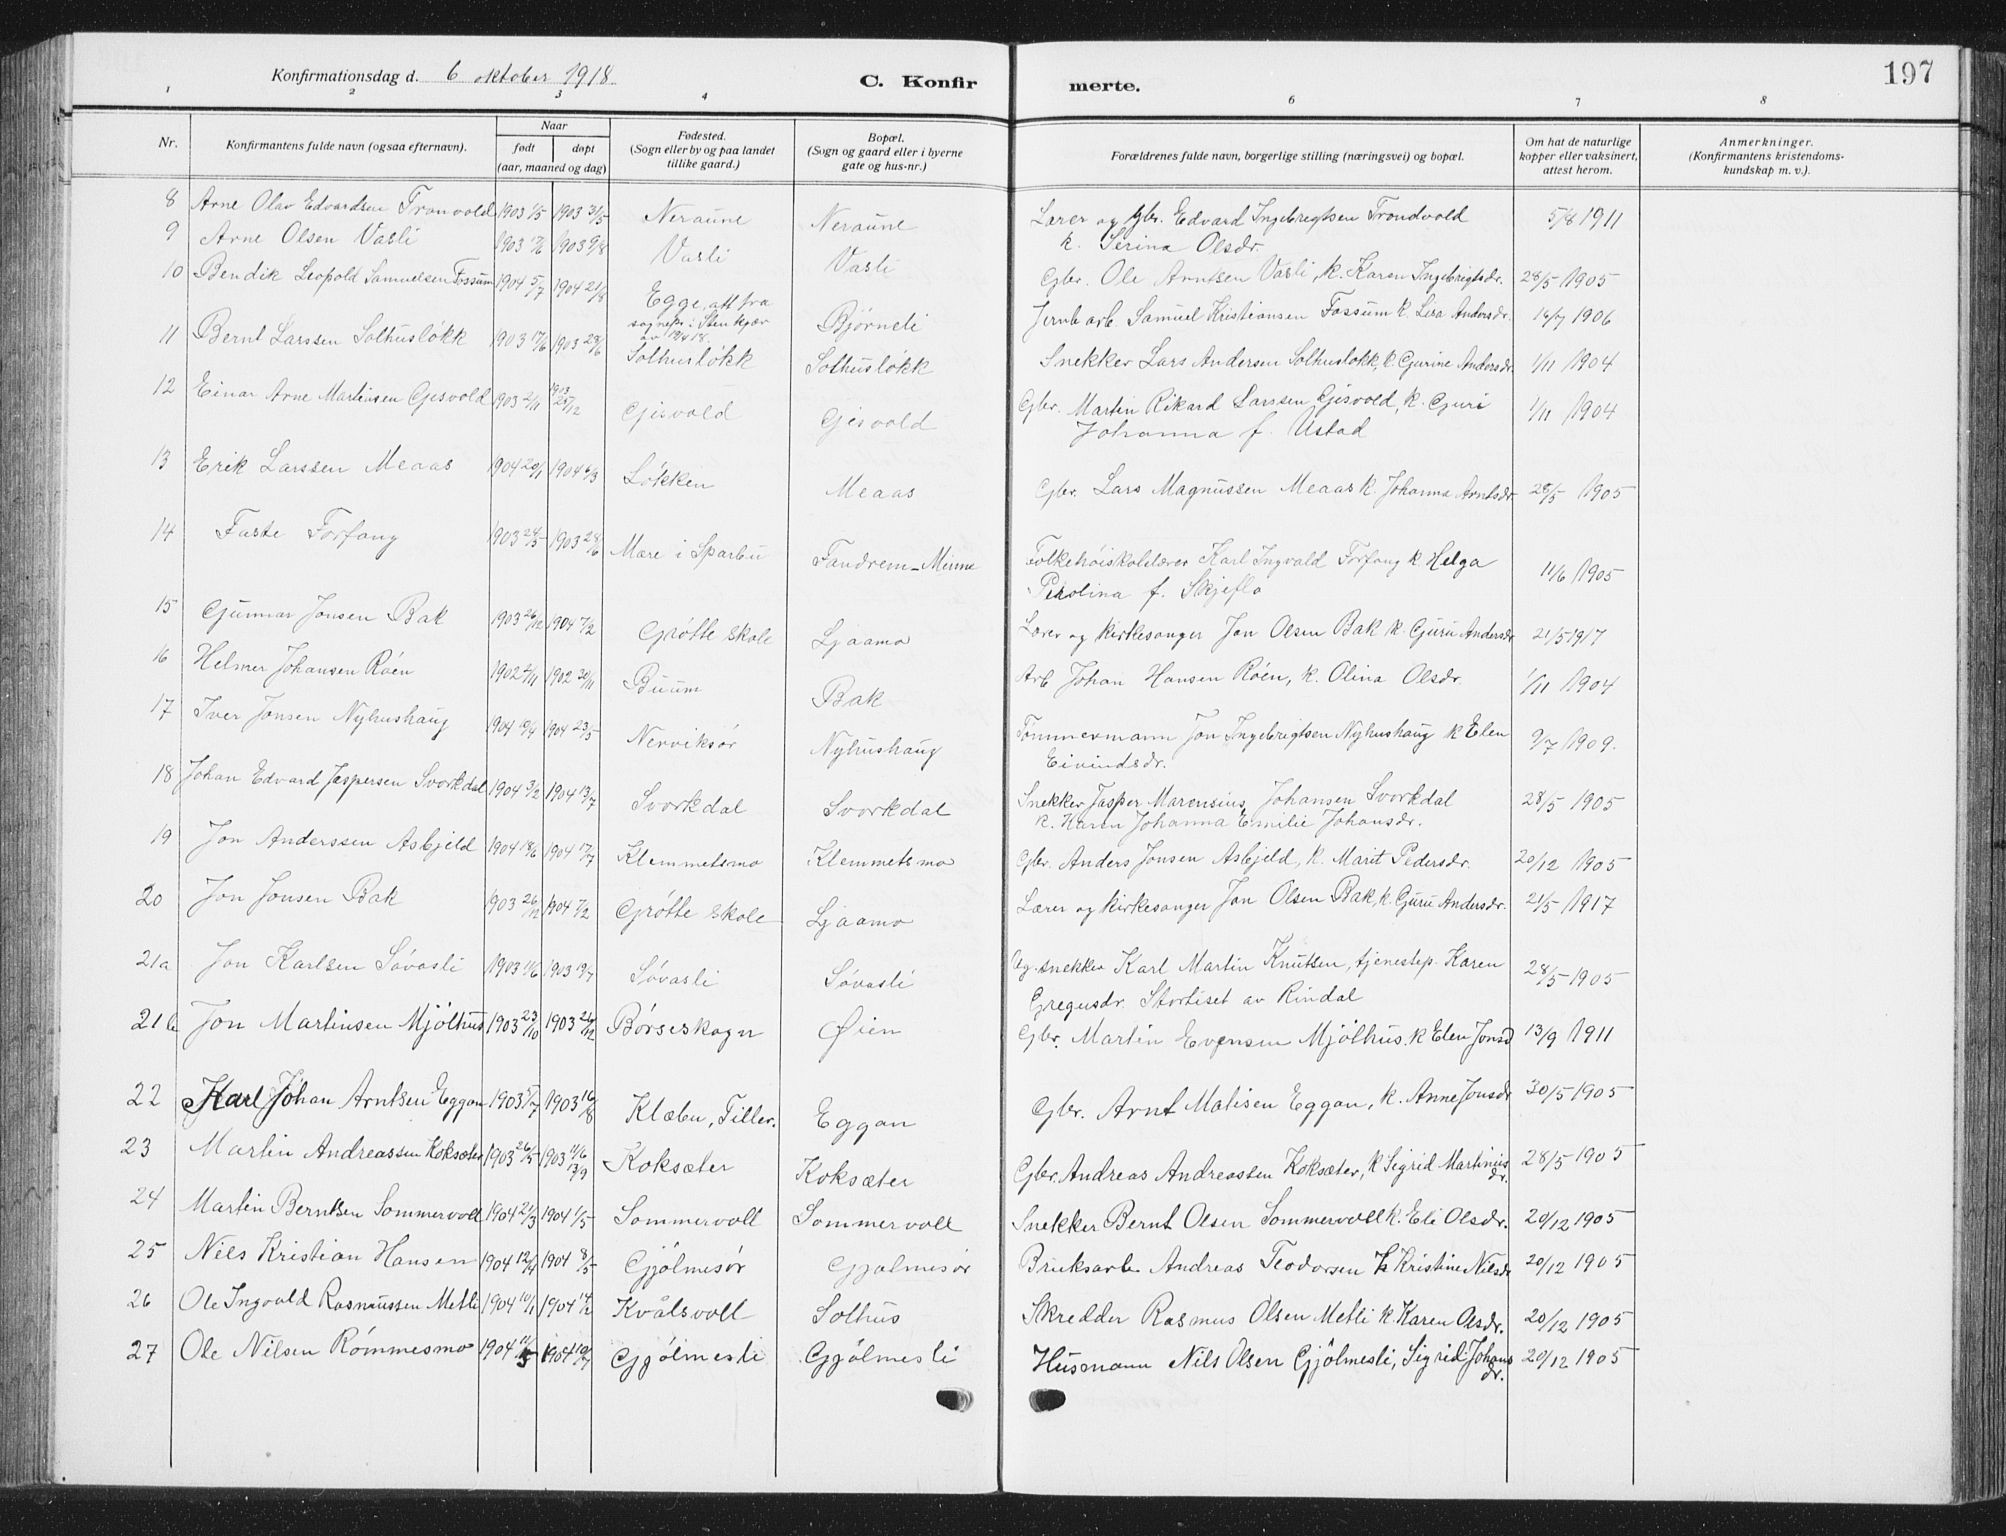 197
Konfirmationsdag d. 6 oktober 1918
C. Konfirmerte.
1 2 3 4 6 7 8
Nr. Konfirmantens fulde navn (ogsaa efternavn). Naar født døpt (aar, maaned og dag) Fødested. (Sogn eller by og paa landet tillike gaard.) Bopæl. (Sogn og gaard eller i byerne gate og hus-nr.) Forældrenes fulde navn, borgerlige stilling (næringsvei) og bopæl. Om hat de naturlige kopper eller vaksinert, attest herom. Anmerkninger. (Konfirmantens kristendoms-kundskap m. v.).
8 Arne Olav Edvardsen Tronvold 1903 1/5 1903 31/5 Neraune Neraune Lærer og Gbr. Edvard Ingebrigtsen Trondvold k. Serina Olsdr. 5/8 1911
9 Arne Olsen Vasli 1903 1903 9/8 Vasli Vasli Gbr. Ole Arntsen Vasli, k. Karen Ingebrigtsdr. 28/5 1905
10 Bendik Leopold Samuelsen Fossum 1904 5/7 1904 21/8 Egge, att fra sognepr. i Stenkjær av 19/4 18. Bjørnli Jernb arb. Samuel Kristiansen Fossum k. Lisa Andersdr. 16/7 1906
11 Bernt Larssen Solhusløkk 1903 17/6 1903 28/6 Solhusløkk Solhusløkk Snekker Lars Andersen Solhusløkk, k. Gurine Andersdr. 1/11 1904
12 Einar Arne Martinsen Gjesvold 1903 2/11 1903 25/12 Gisvold Gisvold Gbr. Martin Rikard Larssen Gisvold, k. Guri Johanna f. Ustad 1/11 1904
13 Erik Larssen Meaas 1904 20/1 1904 6/3 Løkken Meaas Gbr. Lars Magnussen Meaas k. Johanna Arntsdr. 28/5 1905
14 Faste Forfang 1903 24/5 1903 28/6 Mære i Sparbu Fandrem-Minne Folkehøiskolelærer Karl Ingvald Forfang k. Helga Petrolina f. Skjeflo 11/6 1905
15 Gunnar Jonsen Bak 1903 26/12 1904 7/2 Grøtte skole Ljaamo Lærer og kirkesanger Jon Olsen Bak k. Guru Andersdr. 21/5 1917
16 Helmer Johansen Røen 1902 2/11 1902 30/11 Buum Bak Arb Johan Hansen Røen, k. Olina Olsdr. 1/11 1904
17 Iver Jonsen Nyhushaug 1904 1904 23/5 Nerviksør Nyhushaug Tømmermann Jon Ingebrigtsen Nyhushaug k Elen Eivindsdr. 9/7 1909.
18 Johan Edvard Jespersen Svorkdal 1904 3/2 1904 13/7 Svorkdal Svorkdal Snekker Jasper Marensius Johansen Svorkdal k. Karen Johanna Emilie Johansdr. 28/5 1905
19 Jon Anderssen Asbjeld 1904 18/6 1904 17/7 Klemmetsmo Klemmetsmo Gbr. Anders Jonsen Asbjeld, k. Marit Pedersdr. 20/12 1905
20 Jon Jonsen Bak 1903 26/12 1904 7/2 Grøtte skole Ljaamo Lærer og kirkesanger Jon Olsen Bak, k. Guru Andersdr. 21/5 1917
21a Jon Karlsen Søvasli 1903 1903 19/7 Søvasli Søvasli Ug. snekker Karl Martin Knutsen, tjenestep. Karen Gregusdr. Stortiset av Rindal 28/5 1905
21b Jon Martinsen Mjölhus 1903 23/10 1903 26/12 Børseskogn Øien Gbr. Martin Evensen Mjölhus. k Elen Jonsd 13/9 1911
22 Karl Johan Arntsen Eggan 1903 5/7 1903 16/8 Klæbu, Tiller. Eggan Gbr. Arnt Matisen Eggan, k. Anne Jonsdr 30/5 1905
23 Martin Andreassen Koksæter 1903 26/5 1903 11/6 13/9 Koksæter Koksæter Gbr. Andreas Andreassen Koksæter, k Sigrid Martinusdr. 28/5 1905
24 Martin Berntsen Sommervoll 1904 21/3 1904 1/5 Sommervoll Sommervoll Snekker Bernt Olsen Sommervoll k. Eli Olsdr. 20/12 1905
25 Nils Kristian Hansen 1904 12/4 1904 8/5 Gjölmesör Gjølmesör Bruksarb Andreas Teodorsen k Kristine Nilsdr 20/12 1905
26 Ole Ingvald Rasmussen Metli 1904 10/1 1904 14/2 Kvålsvoll Solhus Skredder Rasmus Olsen Metli k. Karen Olsdr. 20/12 1905
27 Ole Nilsen Rømmesmo 1904 1904 10/7 Gjölmesli Gjölmesli Husmann Nils Olsen Gjölmesli, Sigrid Johansdr. 20/12 1905